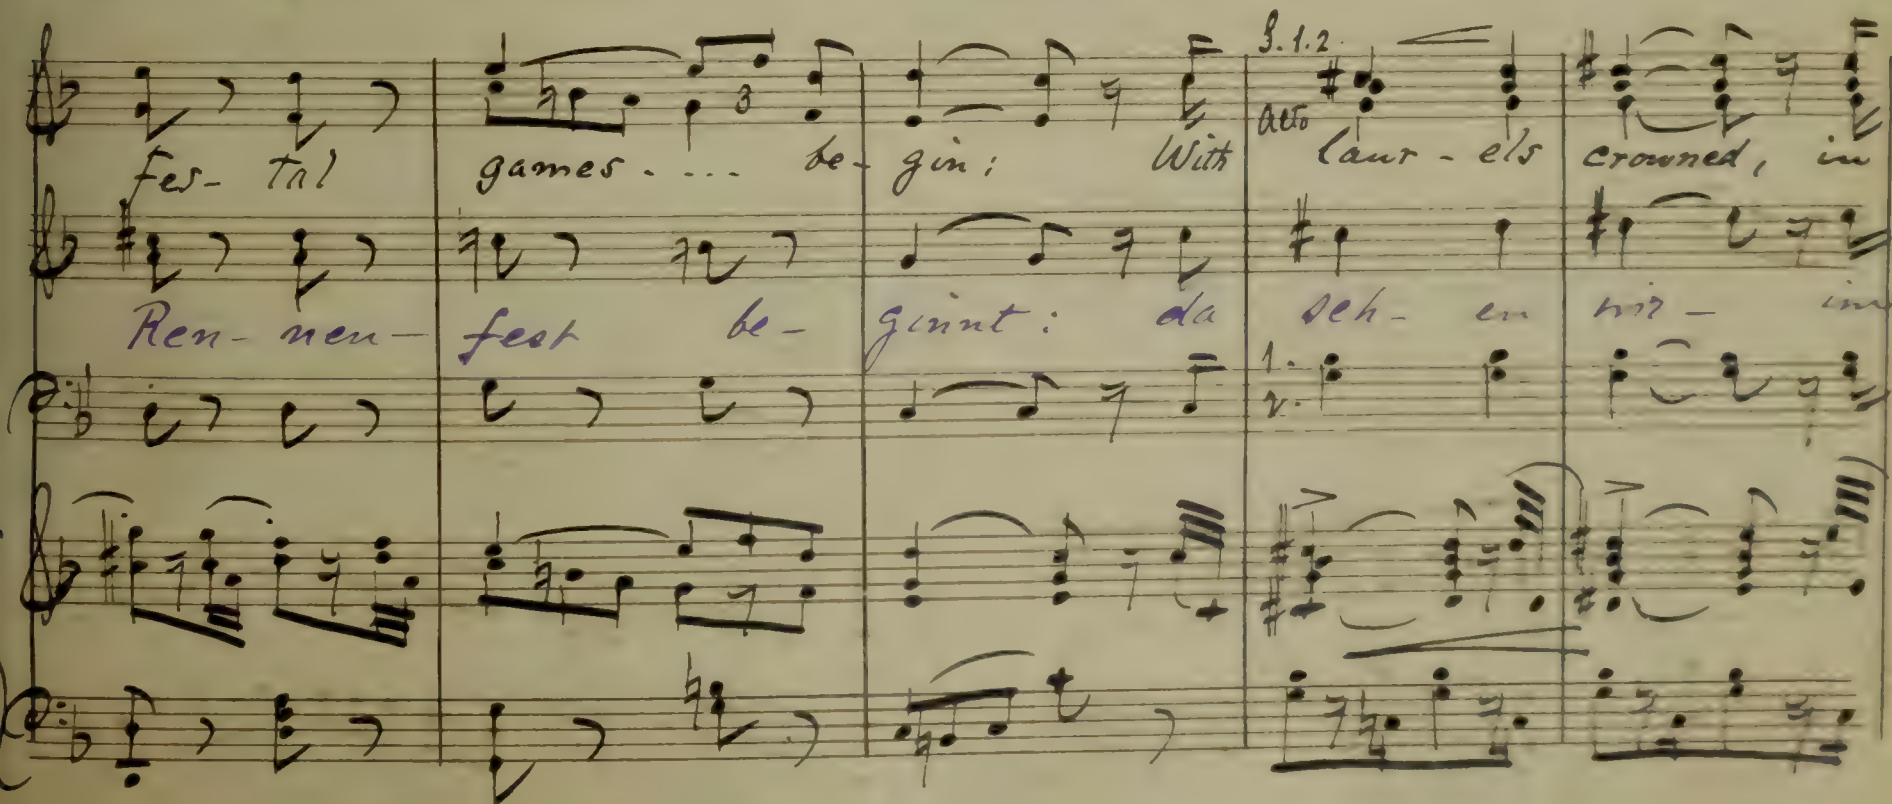 S. 1. 2.
Alto
fes- tal games..... be- gin: With laur- els crowned, in
Ren- nen- fest be- ginnt: da seh- en wir- im
1.
2.
3